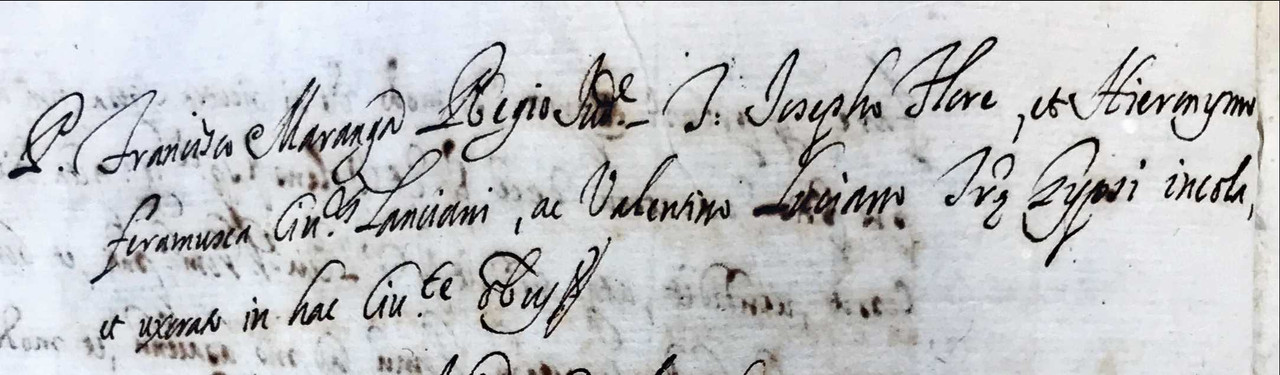 P. Francisco Maranga Regio Jud.e J: Josepho Flere, et Hieronymo
feramusca Civ.is Lanciani, ac Valentino Luciano Trę Gypsi incola,
et uxorato in hac Civ.te